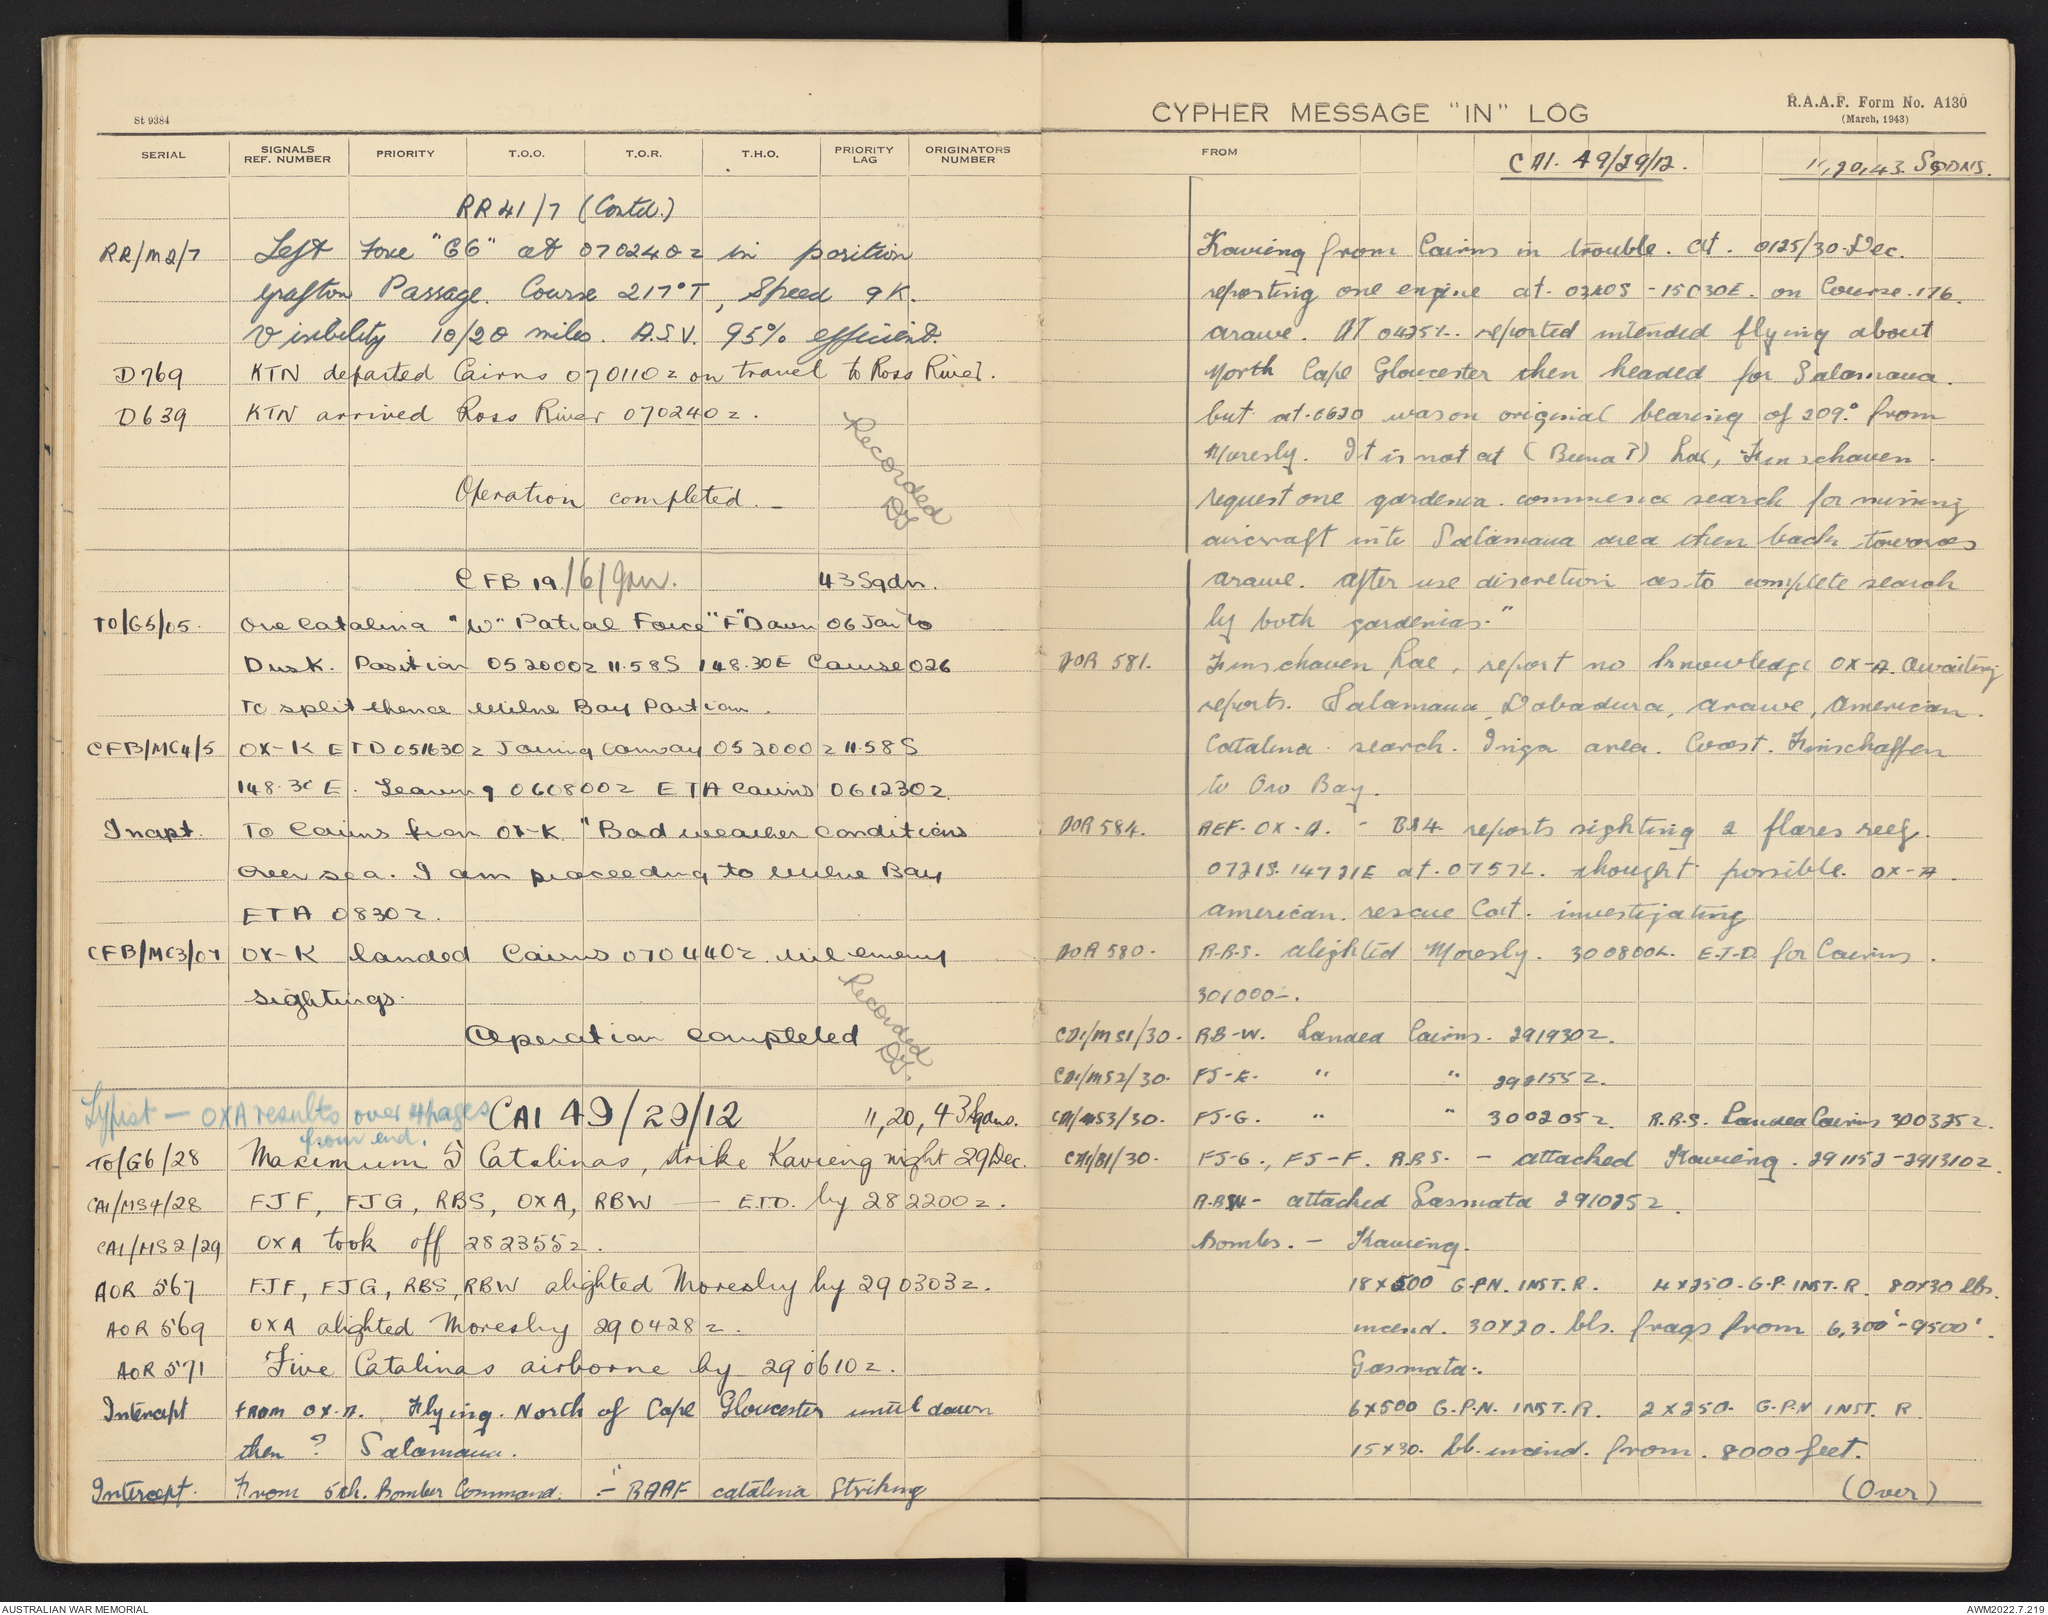 St 9384
SERIAL SIGNALS REF. NUMBER PRIORITY T.O.O. T.O.R. T.H.O. PRIORITY LAG ORIGINATORS NUMBER
RR 41/7 (Contd.)
RR/M2/7 Left Force "G6" at 070240z in position
Grafton Passage. Course 217°T, Speed 9K.
Visibility 10/20 miles. A.S.V. 95% efficient.
D769 KTN departed Cairns 070110z on travel to Ross River.
D639 KTN arrived Ross River 070240z.
Operation completed.
Recorded
CFB 19/6/Jan. 43 Sqdn.
TO/G5/05. One Catalina "W" Patrol Force "F" Dawn 06 Jan to
Dusk. Position 052000z 11.58S 148.30E Course 026
to split thence Milne Bay Portion.
CFB/MC4/5 OX-K ETD 051630z Joining convoy 052000z 11.58S
148.30E. Leaving 060800z ETA Cairns 061230z.
Incpt. To Cairns from OX-K. "Bad weather conditions
over sea. I am proceeding to Milne Bay
ETA 0830z.
CFB/MC3/07 OX-K landed Cairns 070440z nil enemy
sightings.
Operation completed
Recorded
Typist — OXA results over 4 pages
from end.
CA1 49/29/12 11, 20, 43 Sqdns.
TO/G6/28 Maximum 5 Catalinas, strike Kavieng night 29 Dec.
CA1/MS4/28 FJF, FJG, RBS, OXA, RBW — E.T.D. by 282200z.
CA1/MS2/29 OXA took off 282355z.
AOR 567 FJF, FJG, RBS, RBW alighted Moresby by 290303z.
AOR 569 OXA alighted Moresby 290428z.
AOR 571 Five Catalinas airborne by 290610z.
Intercept FROM OX-A. Flying North of Cape Gloucester until dawn
then ? Salamaua.
Intercept. From 5th. Bomber Command. - "RAAF catalina Striking
CYPHER MESSAGE "IN" LOG
R.A.A.F. Form No. A130
(March, 1943)
FROM CA1. 49/29/12. 11,20,43. SQDNS.
Kavieng from Cairns in trouble. At. 0125/30 Dec.
reporting one engine at. 0340S - 15030E. on Course 176.
arawe. AT 0425L. reported intended flying about
North Cape Gloucester then headed for Salamaua.
but at 0620 was on original bearing of 209.° from
Moresby. It is not at (Buna ?) Lae, Finschaven.
request one gardenia. commence search for missing
aircraft into Salamaua area then back towards
arawe. After use discretion as to complete search
by both gardenias."
AOR 581. Finschaven Lae, report no knowledge OX-A. Awaiting
reports. Salamaua, Dobadura, arawe, American.
Catalina search. area. Coast. Finschaffen
to Oro Bay.
AOR 584. REF. OX-A. - B24. reports sighting 2 flares reef.
0721S. 14721E at. 0757L. thought possible OX-A.
American. rescue Cat. investigating
AOR 580. R.B.S. alighted Moresby. 300800L. E.T.D. for Cairns.
301000-.
CA1/MS1/30. RB-W. Landed Cairns. 291930z.
CA1/MS2/30. FJ-K. " " 292155z.
CA1/MS3/30. FJ-G. " " 300205z. R.B.S. Landed Cairns 300325z.
CA1/B1/30. FJ-G., FJ-F. R.B.S. - attacked Kavieng. 291152-291310z.
R.BW - attacked Gasmata 291025z.
Bombs. - Kavieng.
18X500 G.PN. INST.R. 4X250. G.P. INST.R. 80X30 lbs.
incend. 30X20. lbs. frags from 6,300'-9500'.
Gasmata:.
6X500 G.P.N. INST.R. 2X250. G.P.N INST. R.
15X30. lb. incend. from. 8000 feet.
(Over)
AUSTRALIAN WAR MEMORIAL
AWM2022.7.219